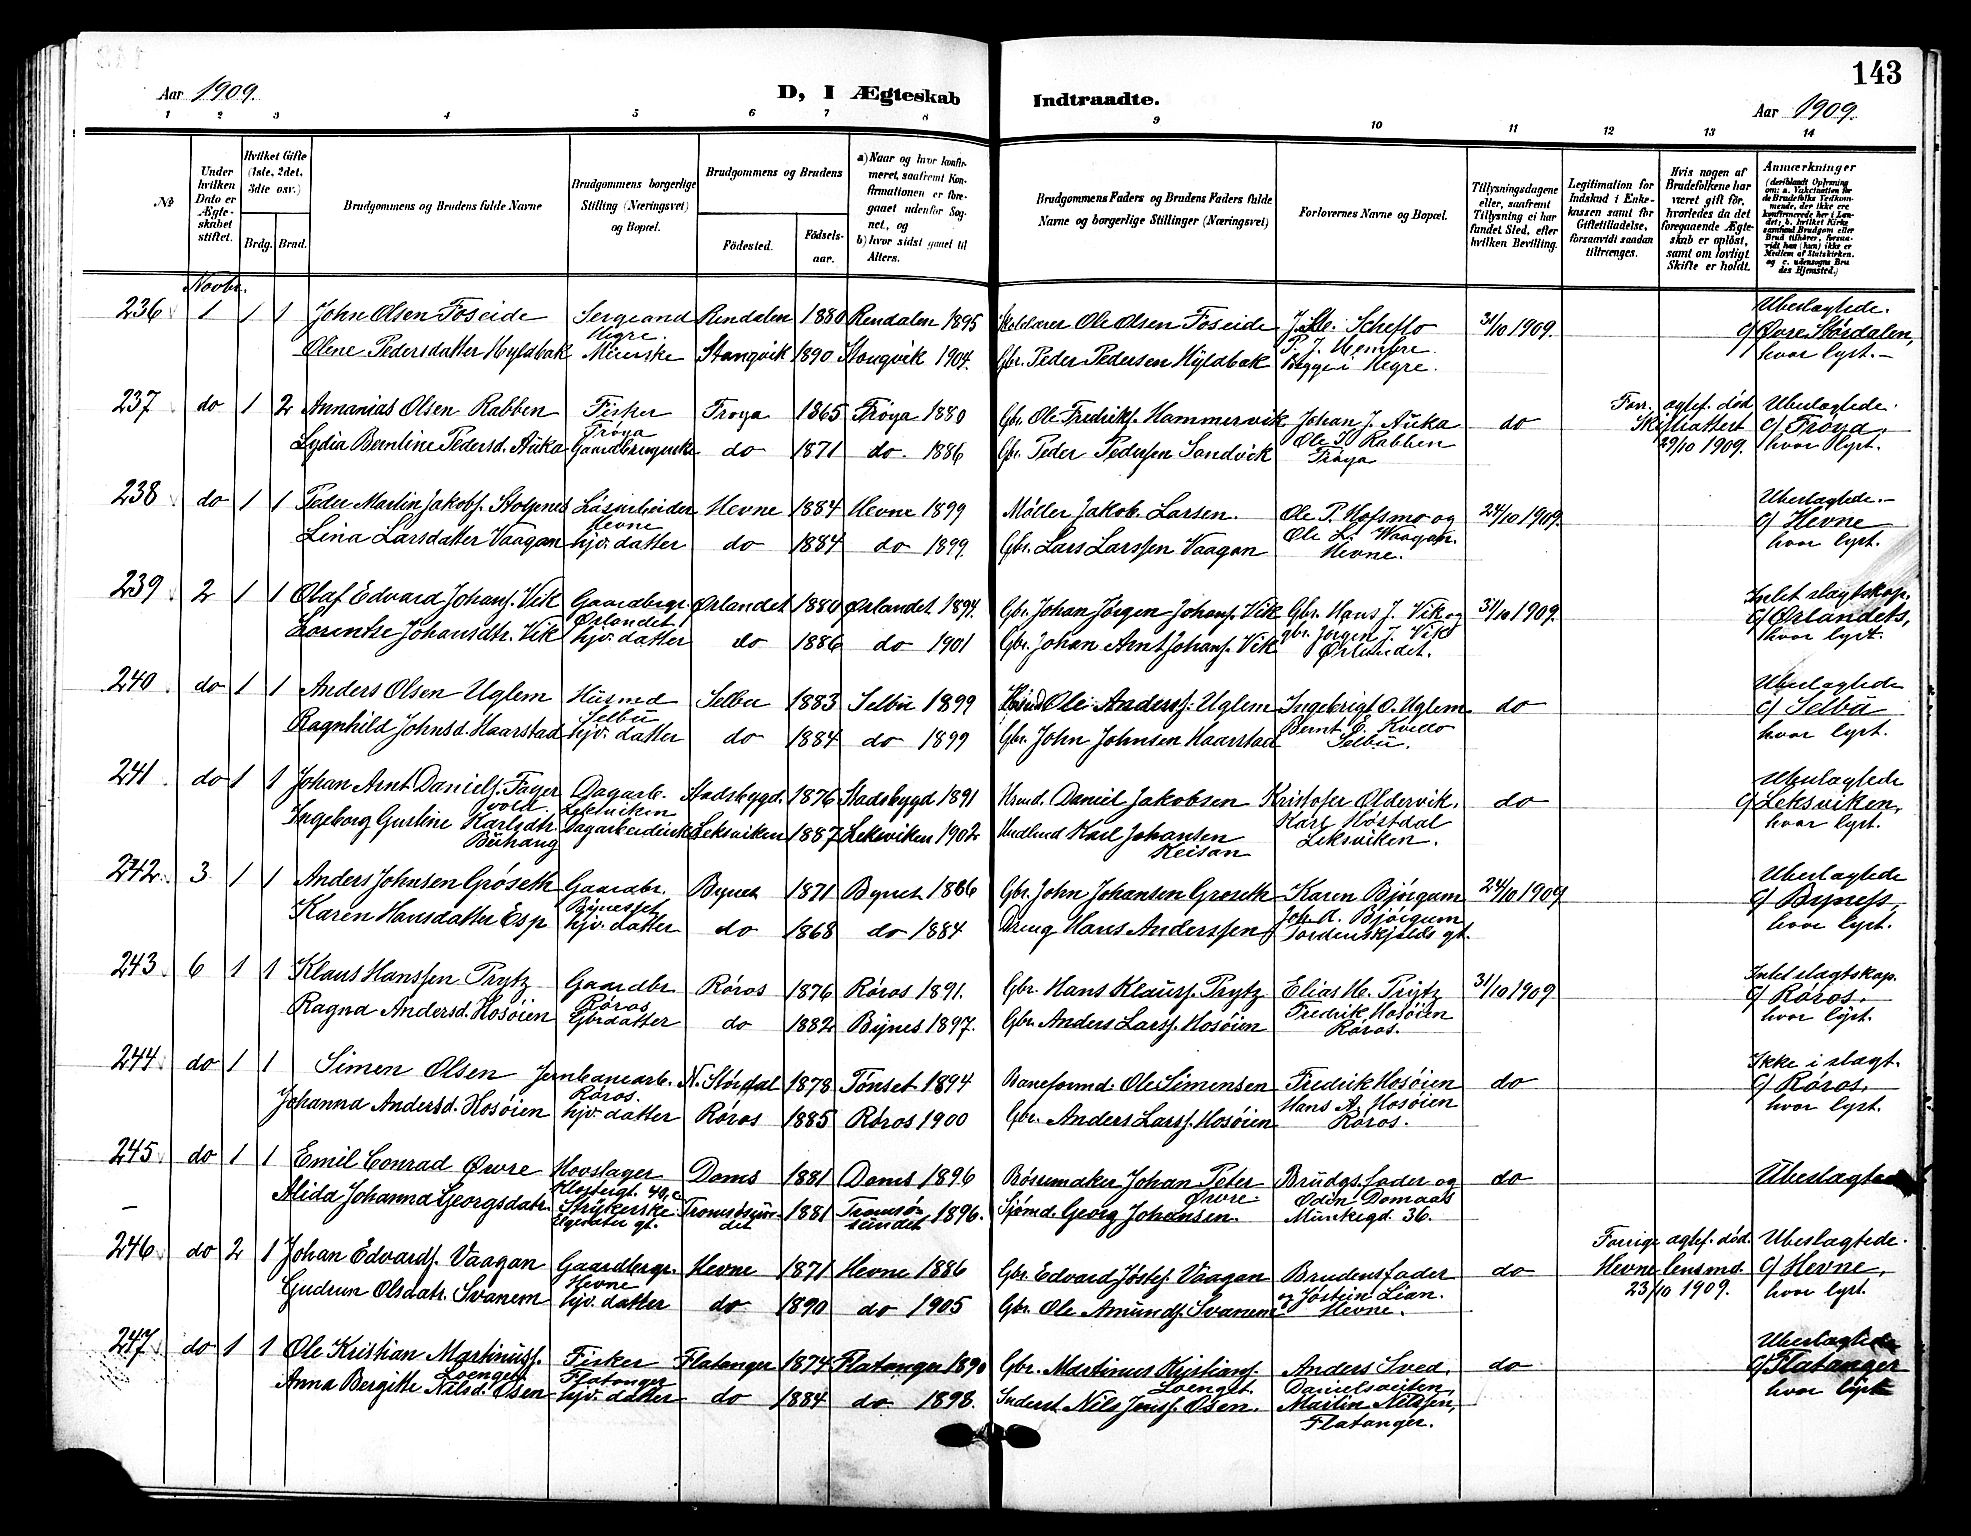 143
Aar 1909. D, I Ægteskab Indtraadte. Aar 1909.
1 2 3 4 5 6 7 8 9 10 11 12 13 14
№
Under hvilken Dato er Ægteskabet stiftet.
Hvilket Gifte (1ste, 2det, 3die osv.)
Brdg. Brud.
Brudgommens og Brudens fulde Navne
Brudgommens borgerlige Stilling (Næringsvei) og Bopæl.
Brudgommens og Brudens
Fødested.
Fødselsaar.
a) Naar og hvor konfirmeret, saafremt Konfirmationen er foregaaet udenfor Sognet, og
b) hvor sidst gaaet til Alters.
Brudgommens Faders og Brudens Faders fulde Navne og borgerlige Stillinger (Næringsvei)
Forlovernes Navne og Bopæl.
Tillysningsdagene eller, saafremt Tillysning ei har fundet Sted, efter hvilken Bevilling.
Legitimation for Indskud i Enkekassen samt for Giftetilladelse, forsaavidt saadan tiltrænges.
Hvis nogen af Brudefolkene har været gift før, hvorledes da det foregaaende Ægteskab er opløst, samt om lovligt Skifte er holdt.
Anmærkninger
(deriblandt Oplysning om: a. Vaccination for de Brudefolks Vedkommende, der ikke ere konfirmerede her i Landet; b. hvilket Kirkesamfund Brudgom eller Brud tilhører, forsaavidt han (hun) ikke er Medlem af Statskirken, og c. udensogns Brudes Hjemsted.)
Novbr.
236 1 1 1 John Olsen Foseide Sergeand Rendalen 1880 Rendalen 1895 Ole Olsen Foseide Scheflo 31/10 1909. Ubeslægtede.
Hegre
Olene Pedersdatter Hyldbak Meierske Stangvik 1890 Stangvik 1904. Gbr. Peder Pedersen Hyldbak Begge i Hegre. Øvre Størdalen, hvor lyst.
237 do 1 2 Annanias Olsen Rabben Fisker Frøya 1865 Frøya 1880 Gbr. Ole Fredriks. Hammervik Johan J. Auka do Forr. ægtef. død Ubeslægtede.
Frøya Ole Rabben Skifteattest c/ Frøya,
Lydia Berntine Pedersd. Auka do 1871 do 1886 Gbr. Peder Pedersen Sandvik Frøya 29/10 1909. hvor lyst.
238 do 1 1 Peder Martin Jakobs. Stolpnes Løsarbeider Hevne 1884 Hevne 1899 Møller Jakob Larsen. Ole P. Hofsmo og 24/10 1909. Ubeslægtede.
Hevne Ole L. Waagan. c/ Hevne
Lina Larsdatter Vaagan hjv. datter do 1884 do 1899. Gbr. Lars Larssen Vaagan Hevne. hvor lyst.
239 2 1 1 Olaf Edvard Johans. Vik Gaardbrgr. Ørlandet 1880 Ørlandet 1894. Gbr. Johan Jørgen Johans. Vik Gbr. Hans J. Vik og 31/10 1909. Intet slægtskap.
Ørlandet gbr. Jørgen J. Vik c/ Ørlandets,
Lorentse Johansdtr. Vik hjv. datter do 1886 do 1901 Gbr. Johan Arnt Johans. Vik Ørlandet. hvor lyst.
240 do 1 1 Anders Olsen Uglem Husmd Selbu 1883 Selbu 1899 Ole Anderss. Uglem Ingebrigt O. Uglem do Ubeslægtede
Selbu Bernt E. Kvedo c/ Selbu
Ragnhild Johnsd. Haarstad hjv. datter do 1884 do 1899 Gbr. John Johnsen Haarstad Selbu. hvor lyst.
241 do 1 1 Johan Arnt Daniels. Fagervold Dagarb. Stadsbygd. 1876 Stadsbygd 1891 Daniel Jakobsen Kristofer Oldervik. do Ubeslægtede
Leksviken Karl Høstdal c/ Leksviken,
Ingeborg Gurline Karlsdtr. Buhaug Leksviken 1887 Leksviken 1902 Karl Johansen Keisan Leksviken. hvor lyst.
242 3 1 1 Anders Johnsen Grøseth Gaardbr. Bynes 1871 Bynes 1886 Gbr. John Johansen Grøseth Karen Bjørgum 24/10 1909 Ubeslægtede
Bynesset Joh. A. Bjørgum c/ Byness,
Karen Hansdatter Esp hjv. datter do 1868 do 1884 Dreng Hans Anderssen Tordenskjolds gt. hvor lyst.
243 6 1 1 Klaus Hanssen Trytz Gaardbr Røros 1876 Røros 1891. Gbr. Hans Klauss. Trytz Elias H. Trytz 31/10 1909 Intet slægtskap.
Røros Fredrik Hosøien c/ Røros,
Ragna Andersd. Hosøien Gbrdatter do 1882 Bynes 1897. Gbr. Anders Larss. Hosøien Røros. hvor lyst.
244 do 1 1 Simen Olsen Jernbanearb. N. Størdal 1878 Tønset 1894 Baneformd. Ole Simensen Fredrik Hosøien do Ikke i slægt.
Røros. Hans A. Hosøien c/ Røros,
Johanna Andersd. Hosøien hjv. datter Røros 1885 Røros 1900 Gbr. Anders Larss. Hosøien Røros. hvor lyst.
245 do 1 1 Emil Conrad Øwre Hovslager Doms 1881 Doms 1896 Børsemaker Johan Peter Øwre Brudgs. fader og do Ubeslægtede
Klostergt. 40, c Odin Domaas
Alida Johanna Georgsdatr. Strykerske Tromsøsundet 1881 Tromsøsundet 1896. Sjømd. Georg Johansen. Munkegd. 36.
246 do 2 1 Johan Edvards. Vaagan Gaardbrgr. Hevne 1871 Hevne 1886 Gbr. Edvard Jøstes. Vaagan Brudens fader do Forrige ægtef. død. Ubeslægtede.
Hevne og Jøstein Lian. Hevne lensmd. c/ Hevne,
Gudrun Olsdatr. Svanem hjv. datter do 1890 do 1905 Gbr. Ole Amunds. Svanem Hevne. 23/10 1909. hvor lyst.
247 do 1 1 Ole Kristian Martinuss. Loenget Fisker Flatanger 1874 Flatanger 1890 Gbr. Martinus Kristians. Loenget. Anders Sved, do Ubeslægtede
Flatanger Danielsveiten, c/ Flatanger
Anna Bergitte Nilsd. Osen hjv. datter do 1884 do 1898. Inderst Nils Jenss. Osen. Martin Nilssen, Flatanger. hvor lyst